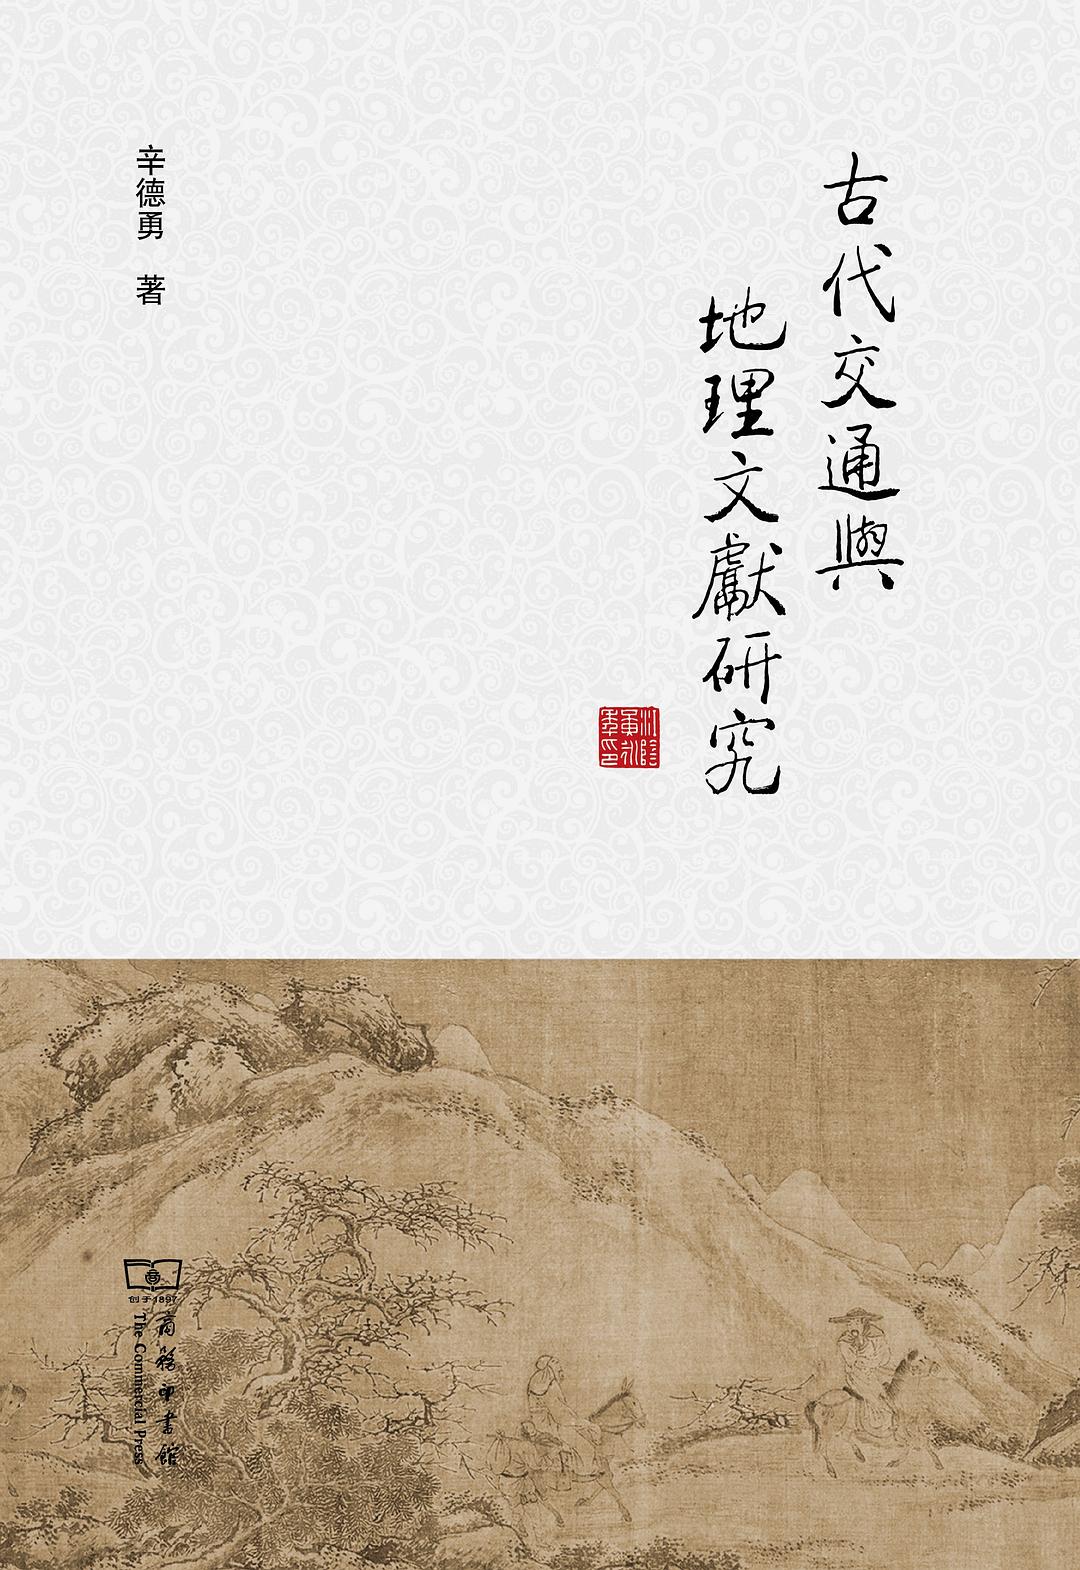 古代交通與
地理文獻研究
辛德勇 著
创于1897
商務印書館
The Commercial Press